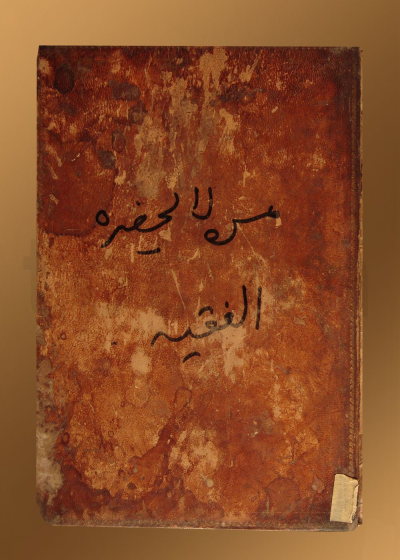 من لا يحضره
الفقيه